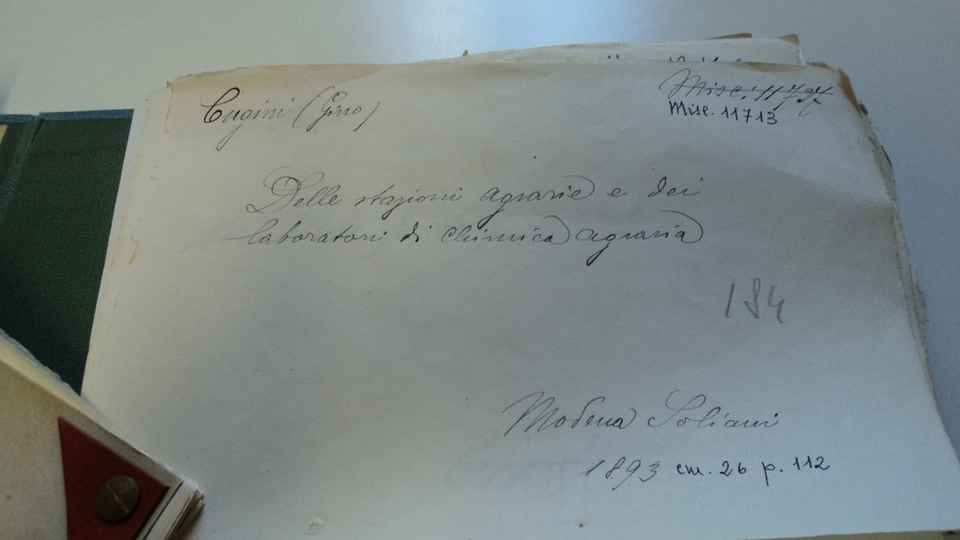 Cugini (Gino)
Misc. 11713
Delle stazioni agrarie e dei
laboratori di chimica agraria
184
Modena Soliani
1893 cm. 26 p. 112